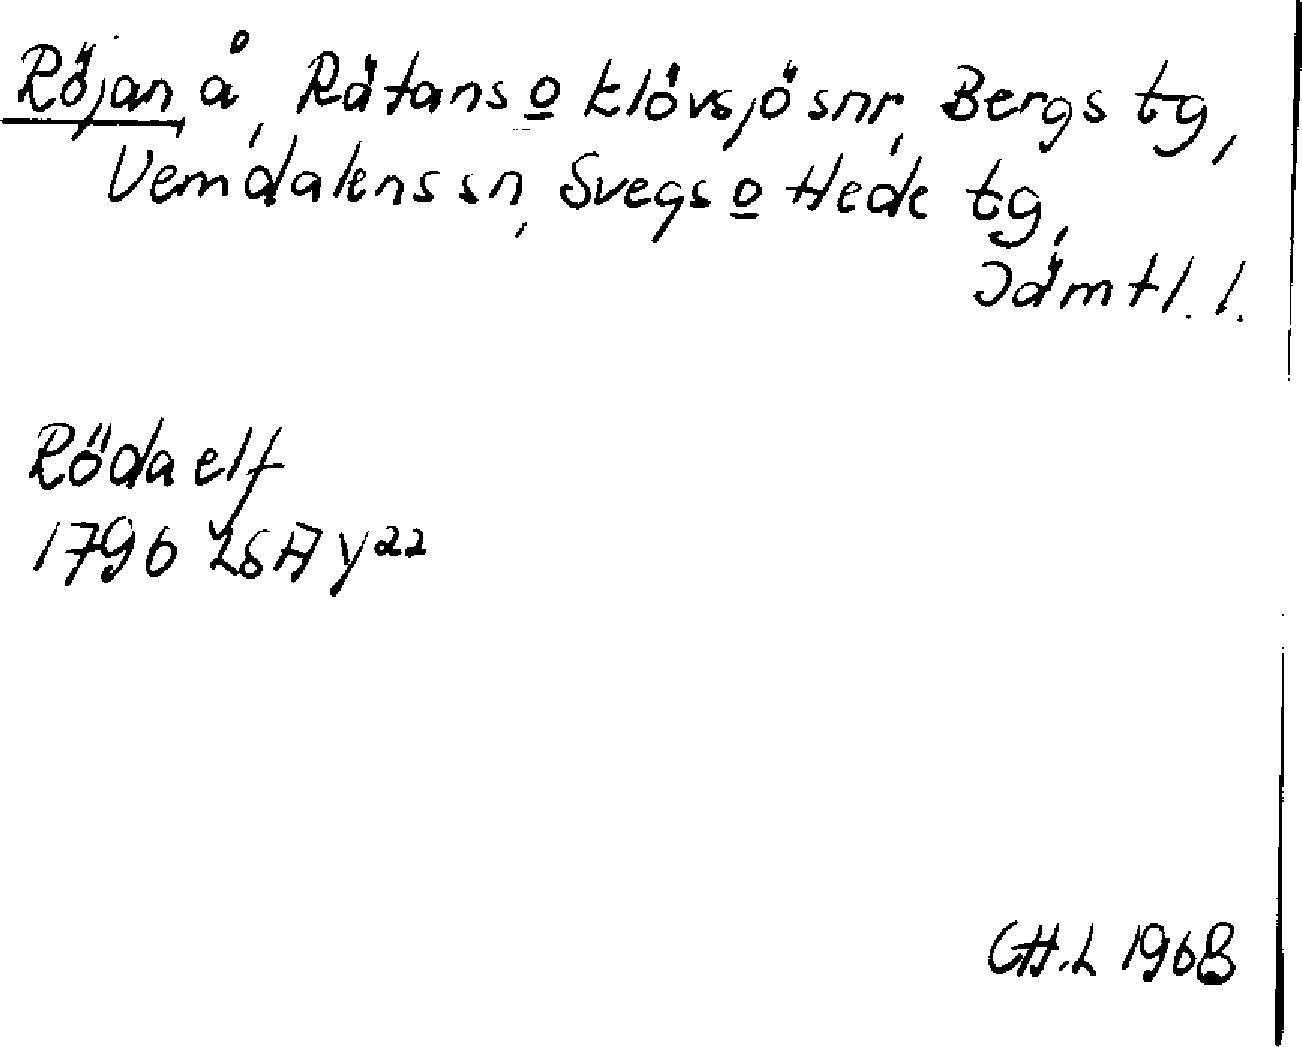 Röjan å, Rätans o Klövsjö snr, Bergs tg,
Vemdalens sn, Svegs o Hede tg,
Jämtl. l.
Röda elf
1796 LSA y22
CH.L 1968